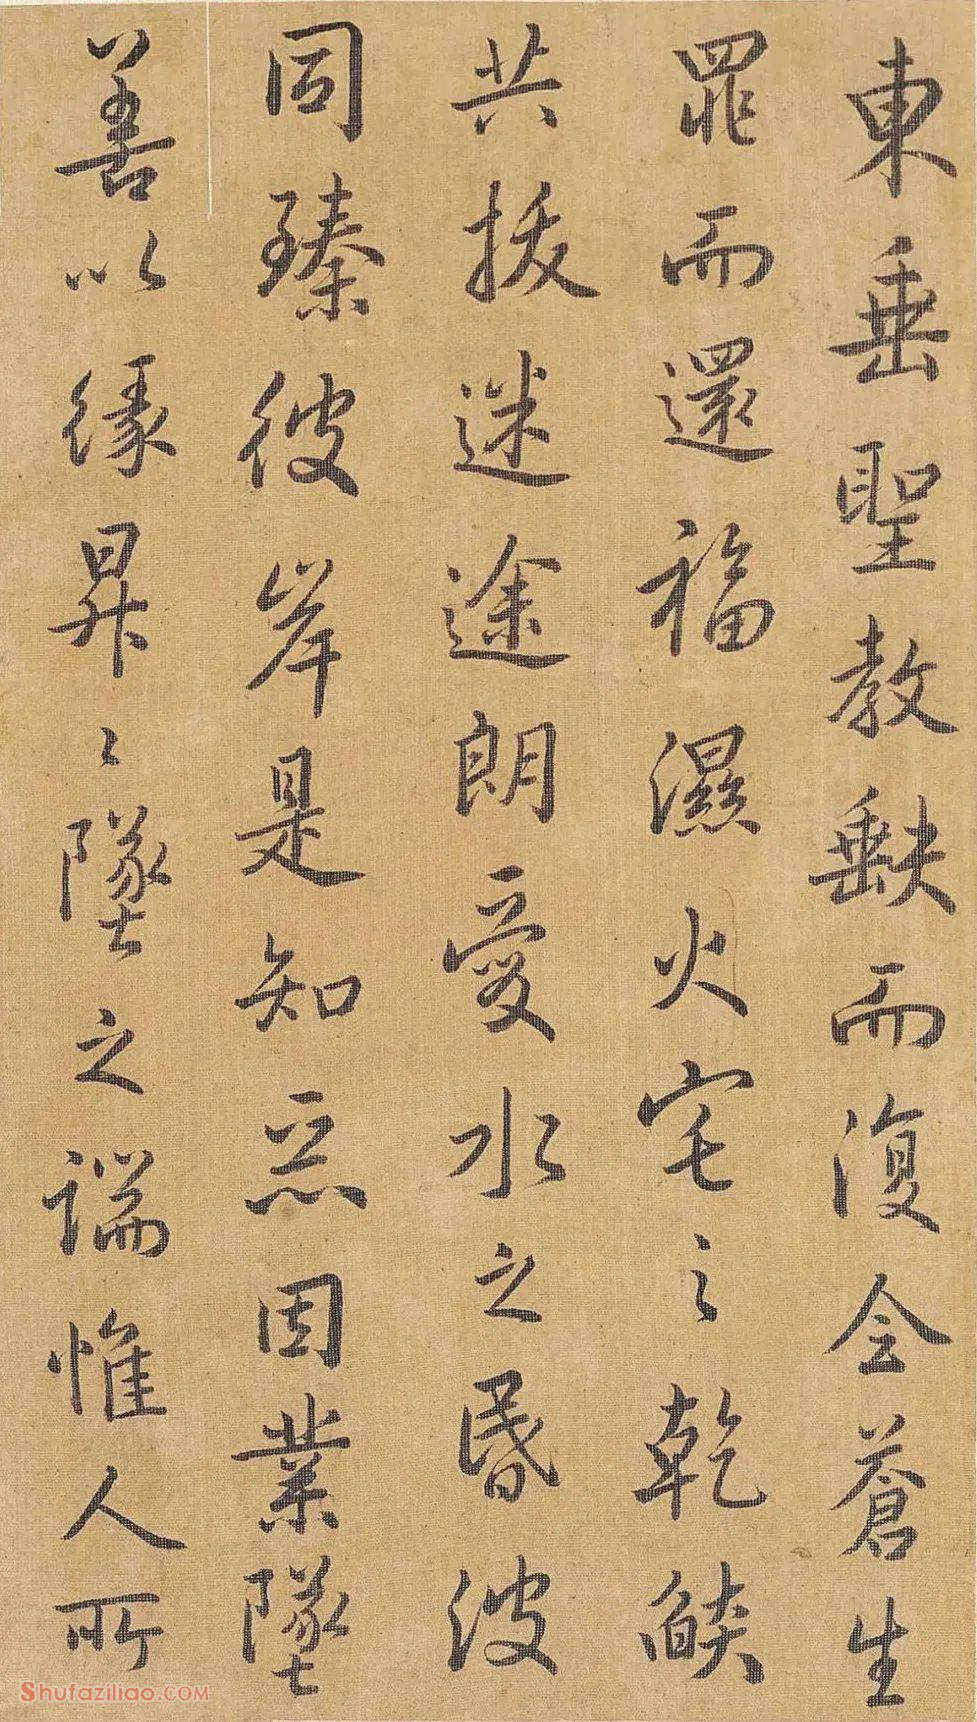 東垂聖教缺而復令蒼生
罪而還福濕火宅之乾燄
共拔迷途朗愛水之昬波
同臻彼岸是知惡因業墜
善以緣昇〻墜之端惟人所
Shufaziliao.COM